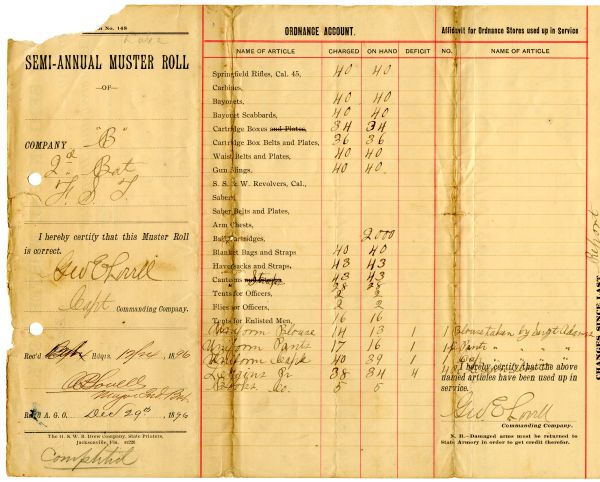 No. 148
SEMI-ANNUAL MUSTER ROLL
—OF—
COMPANY "B"
2d Bat
F. S. T.
I hereby certify that this Muster Roll
is correct.
Geo E Lovell
Capt Commanding Company.
Rec'd Hdqrs. 12/24 1896
Major 2nd Bat.
Rec'd A. G. O. Dec 29th 1896
The H. & W. B. Drew Company, State Printers,
Jacksonville, Fla.
Completed
ORDNANCE ACCOUNT.
NAME OF ARTICLE CHARGED ON HAND DEFICIT
Springfield Rifles, Cal. 45, 40 40
Carbines,
Bayonets, 40 40
Bayonet Scabbards, 40 40
Cartridge Boxes and Plates, 34 34
Cartridge Box Belts and Plates, 36 36
Waist Belts and Plates, 40 40
Gun Slings, 40 40
S. & W. Revolvers, Cal.,
Sabers,
Saber Belts and Plates,
Arm Chests,
Ball Cartridges, 2000
Blanket Bags and Straps 40 40
Haversacks and Straps, 43 43
Canteens and Straps, 43 43
Tents for Officers, 2 2
Flies for Officers, 2 2
Tents for Enlisted Men, 16 16
Uniform Blouse 14 13 1
Uniform Pants 17 16 1
Uniform Caps 40 39 1
Leggins Pr. 38 34 4
Books Co. 5 5
Affidavit for Ordnance Stores used up in Service
NO. NAME OF ARTICLE
1 Blouse taken by Sergt Adams
1 Pants " " "
1 Cap " " "
I hereby certify that the above
named articles have been used up in
service.
Geo E Lovell
Commanding Company.
N. B.—Damaged arms must be returned to
State Armory in order to get credit therefor.
CHANGES SINCE LAST
Report